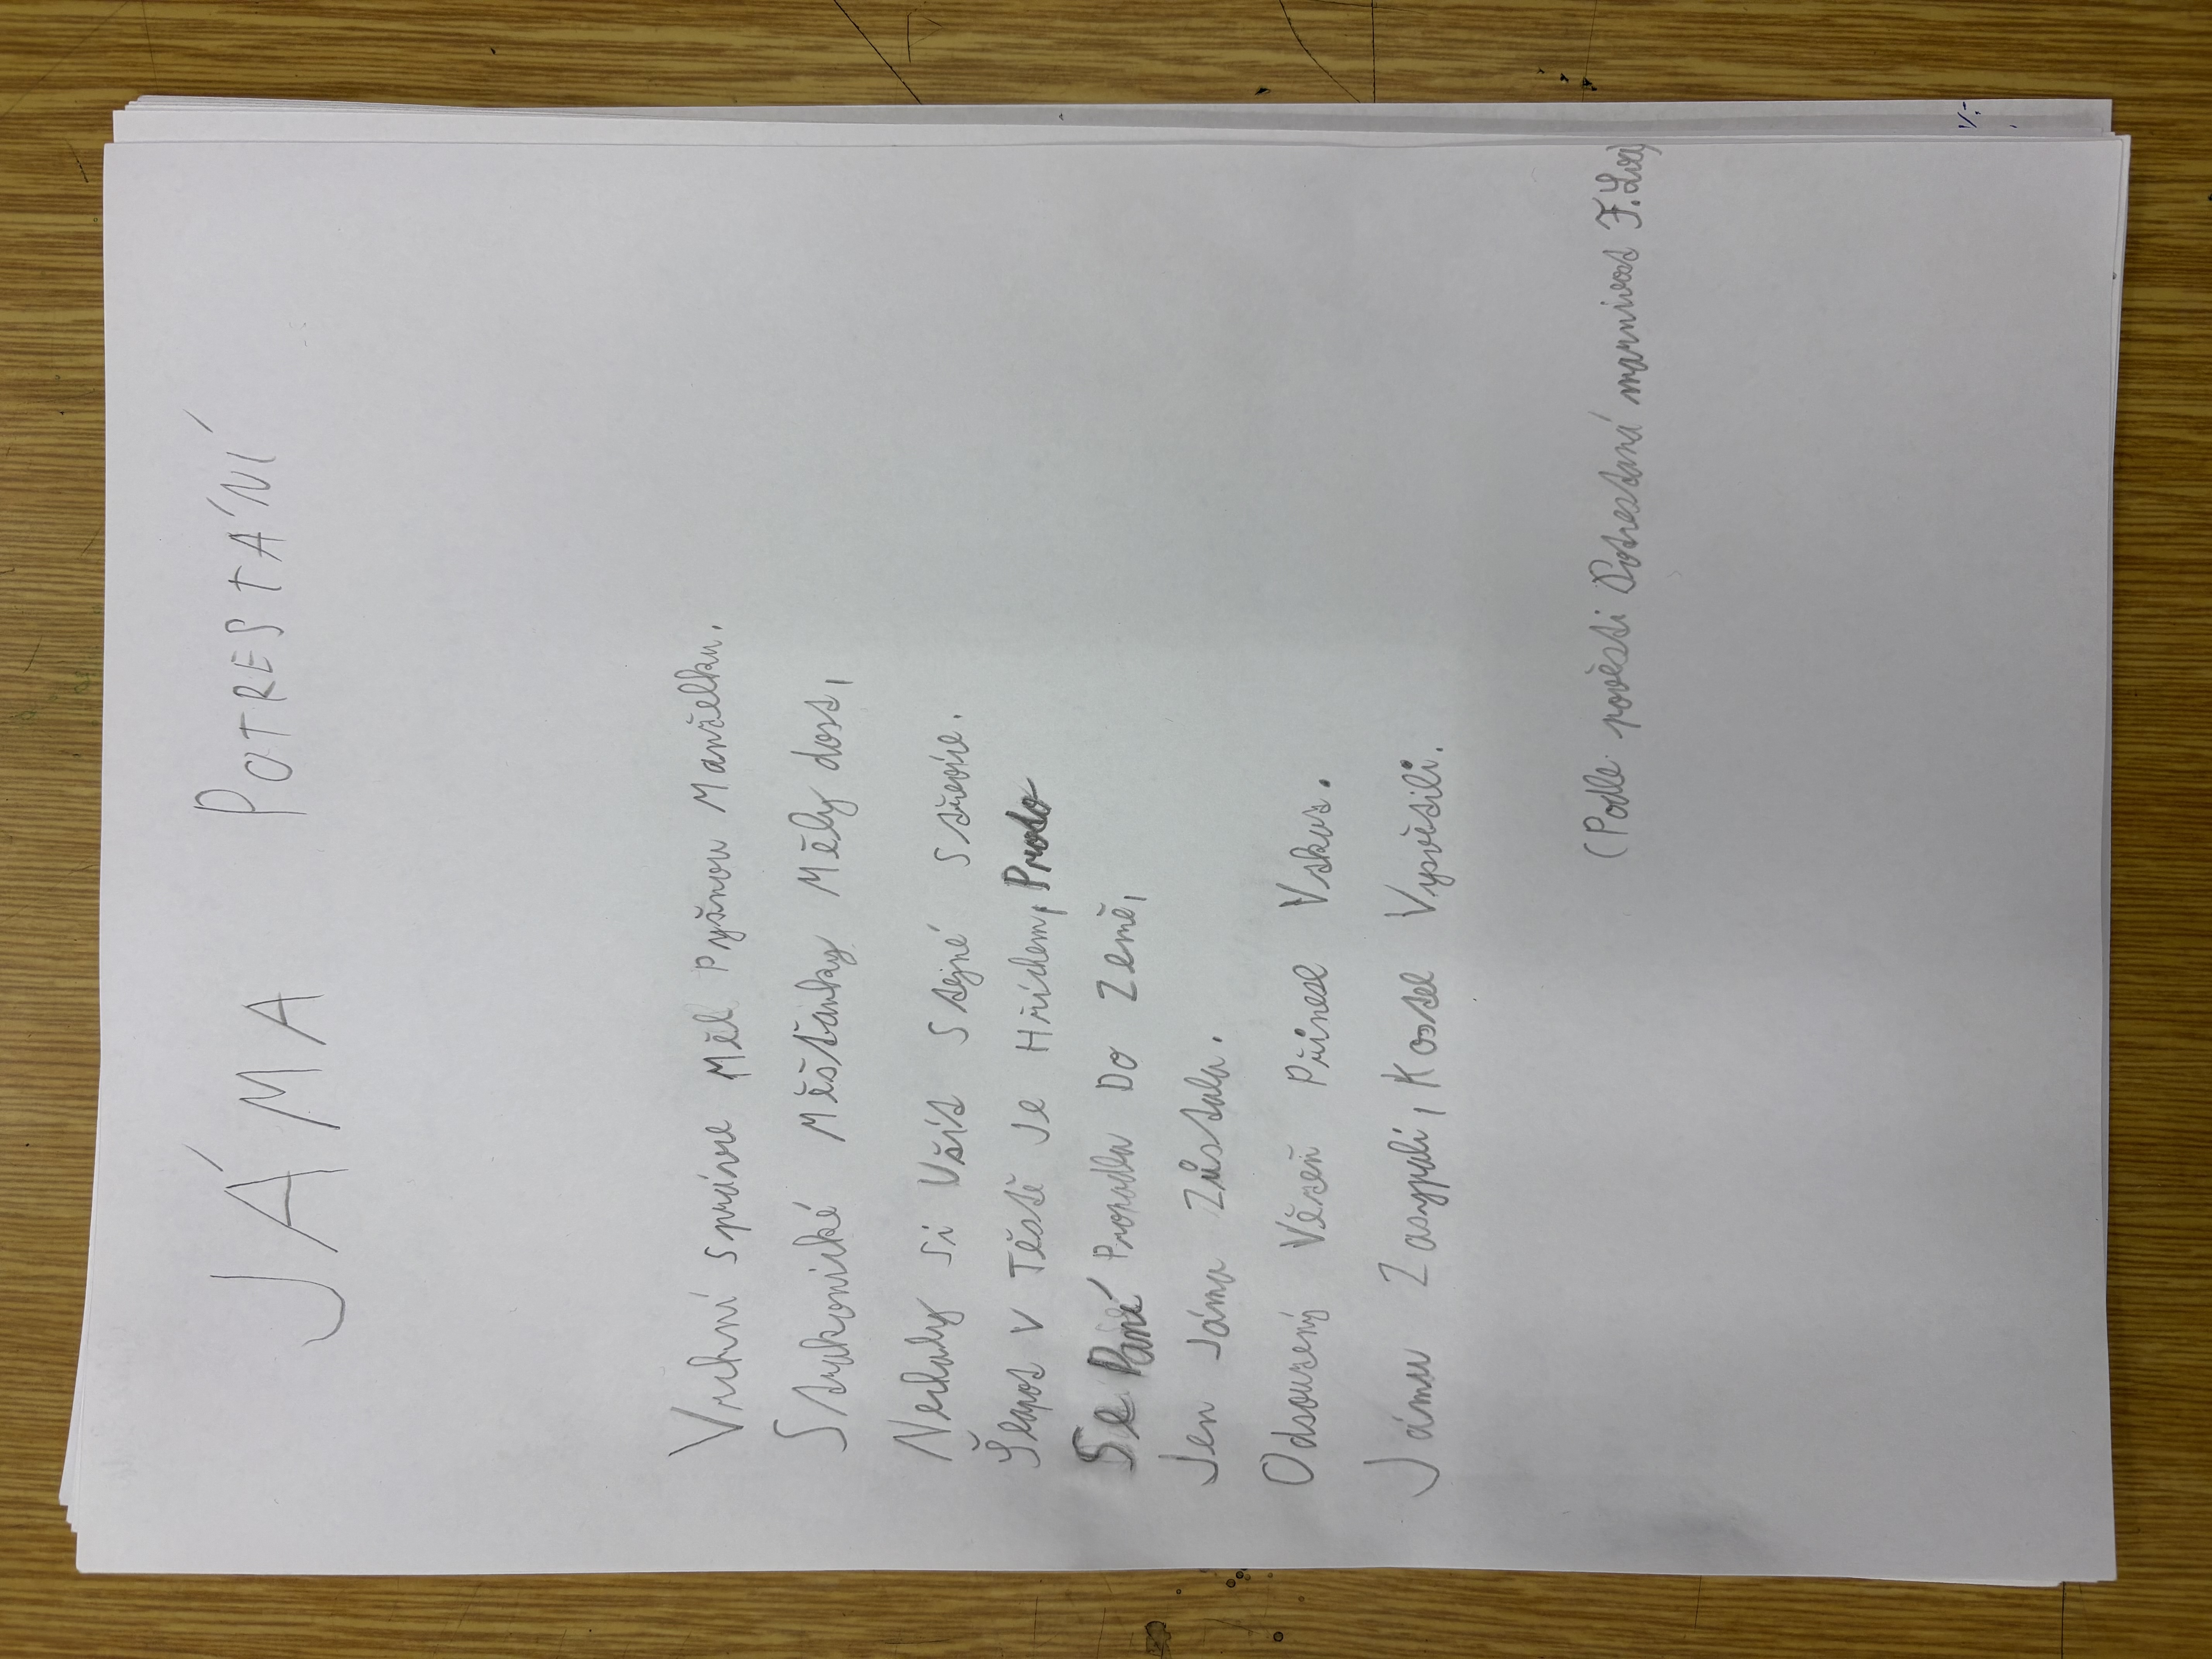 JÁMA POTRESTÁNÍ
Vrchní Správce Měl Pyšnou Manželku.
Strakonické Měšťanky Měly dost,
Nechaly Si Ušít Stejné Střevíce.
Šlapat V Těstě Je Hříchem, Proto
Se Paní Propadla Do Země,
Jen Jáma Zůstala.
Odsouzený Vězeň Přinesl Vzkaz.
Jámu Zasypali, Kostel Vysvětili.
(Podle pověsti Potrestaná marnivost